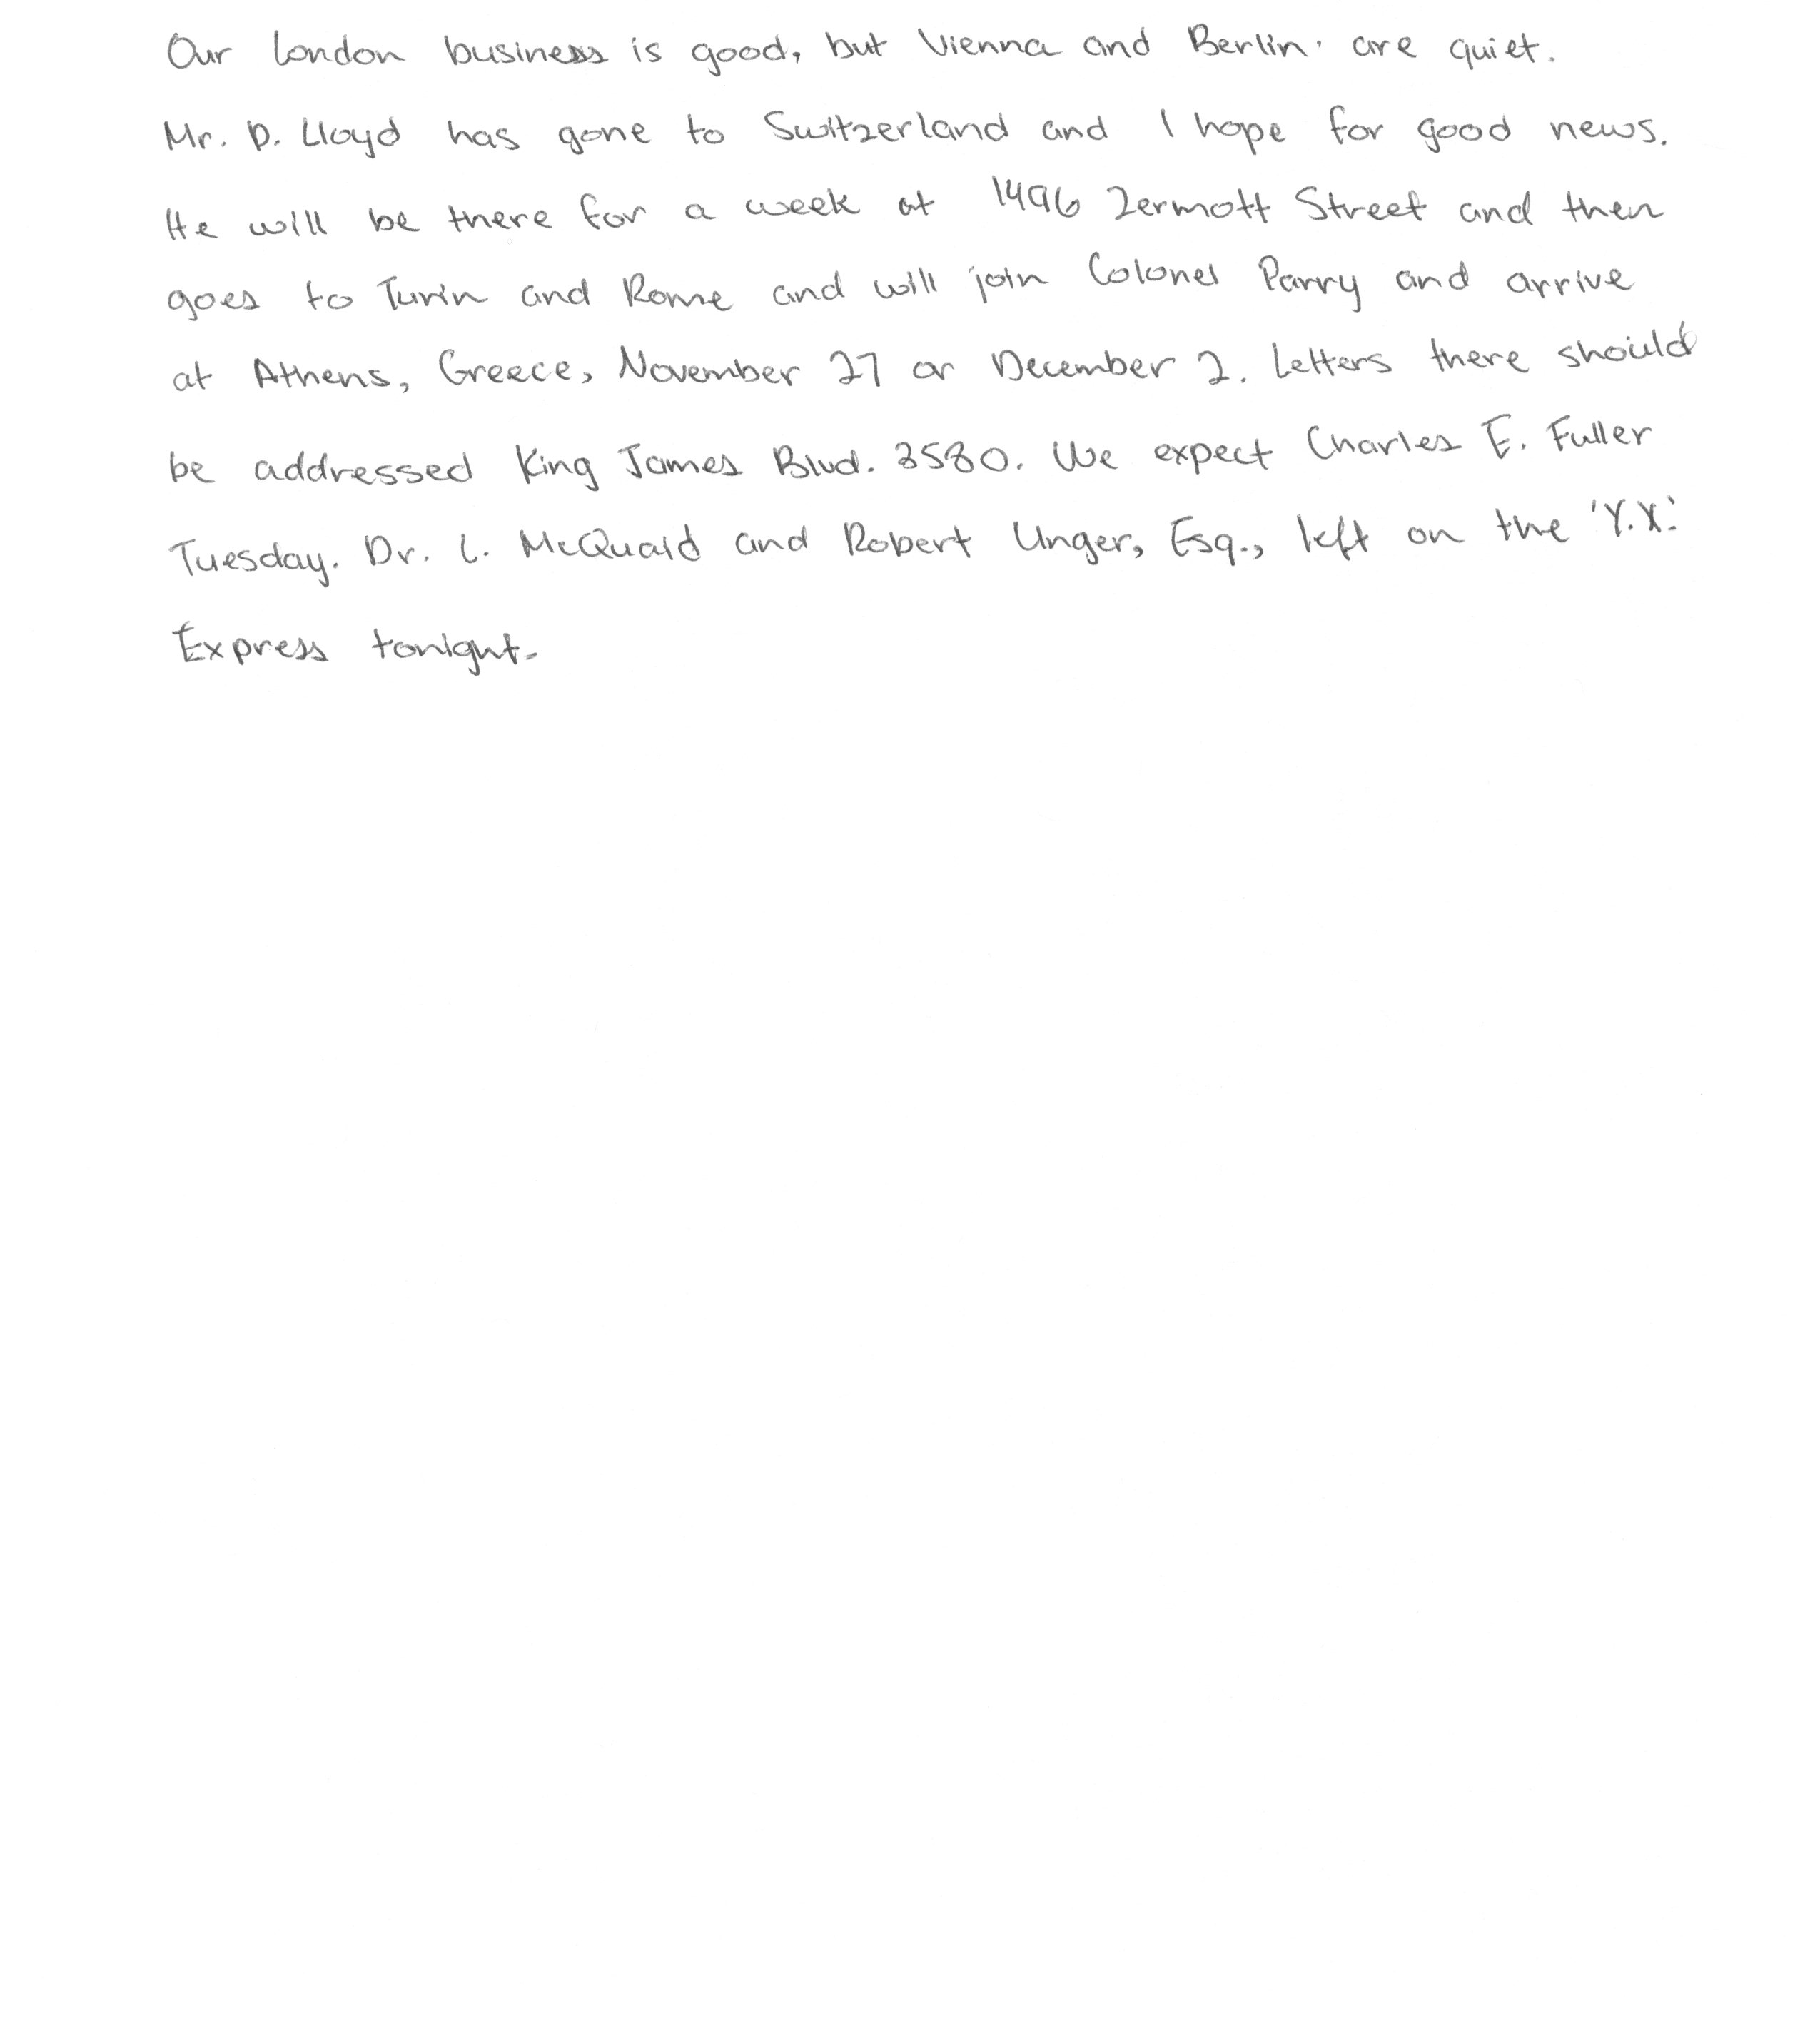 Our London business is good, but Vienna and Berlin. are quiet.
Mr. D. Lloyd has gone to Switzerland and I hope for good news.
He will be there for a week at 1496 Zermott Street and then
goes to Turin and Rome and will join Colonel Parry and arrive
at Athens, Greece, November 27 or December 2. Letters there should
be addressed King James Blvd. 3580. We expect Charles E. Fuller
Tuesday. Dr. L. McQuaid and Robert Unger, Esq., left on the 'Y.X.'
Express tonight.